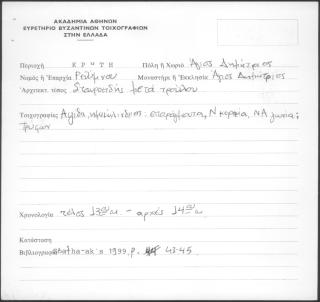 ΑΚΑΔΗΜΙΑ ΑΘΗΝΩΝ
ΕΥΡΕΤΗΡΙΟ ΒΥΖΑΝΤΙΝΩΝ ΤΟΙΧΟΓΡΑΦΙΩΝ
ΣΤΗΝ ΕΛΛΑΔΑ
Περιοχή ΚΡΗΤΗ Πόλη ή Χωριό Άγιος Δημήτριος
Νομός ή Επαρχία Ρεθύμνου Μοναστήρι ή Εκκλησία Άγιος Δημήτριος
Αρχιτεκτ. τύπος Σταυροειδής μετά τρούλου
Τοιχογραφίες Αψίδα, ημικύλινδρος: σπαράγματα, Ν κεραία, ΝΑ γωνία:
Χρονολογία τέλος 13ου αι. - αρχές 14ου αι.
Κατάσταση
Βιβλιογραφία 1999, p. 43-45.